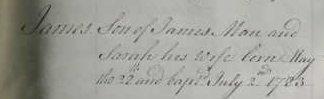 James Son of James Man and
Sarah his Wife born May
the 22d and bapt. July 2nd 1783